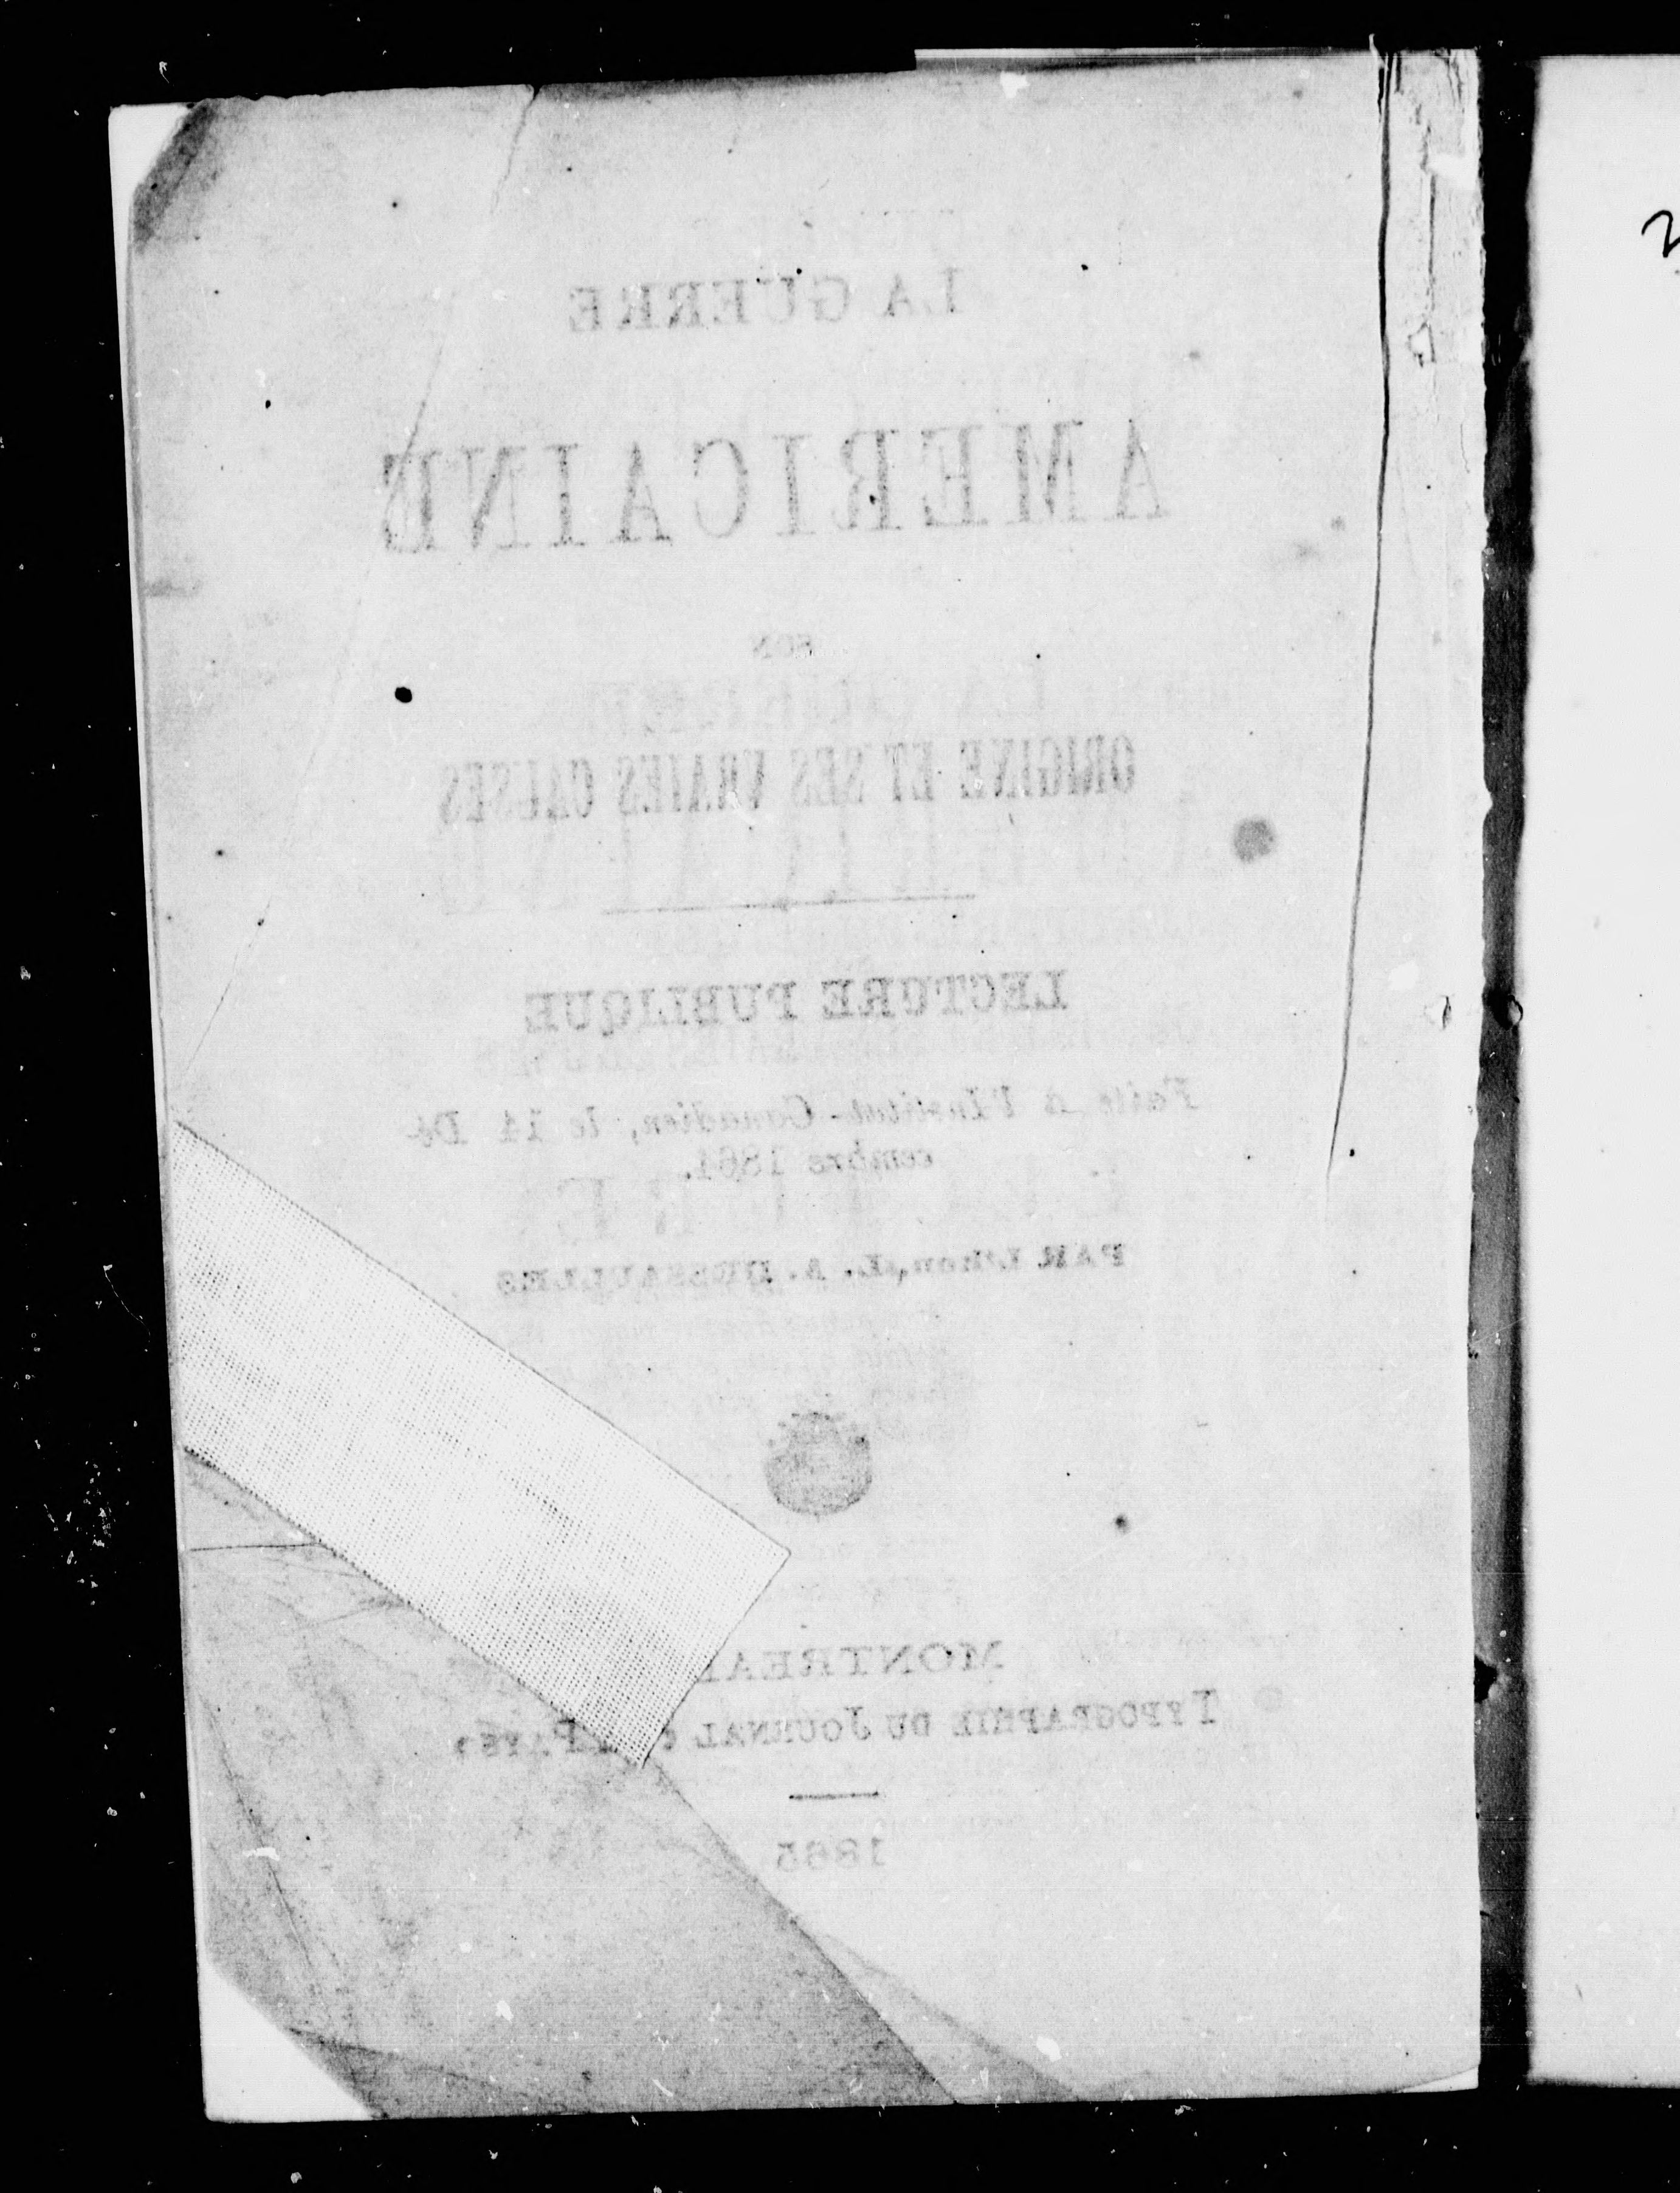 LA GUERRE
AMERICAINE
SON
ORIGINE ET SES VRAIES CAUSES
LECTURE PUBLIQUE
Faite à l'Institut-Canadien, le 14 Dé-
cembre 1864.
PAR L'hon. L. A. DESSAULLES
MONTREAL
TYPOGRAPHIE DU JOURNAL PAYS,
1865
2